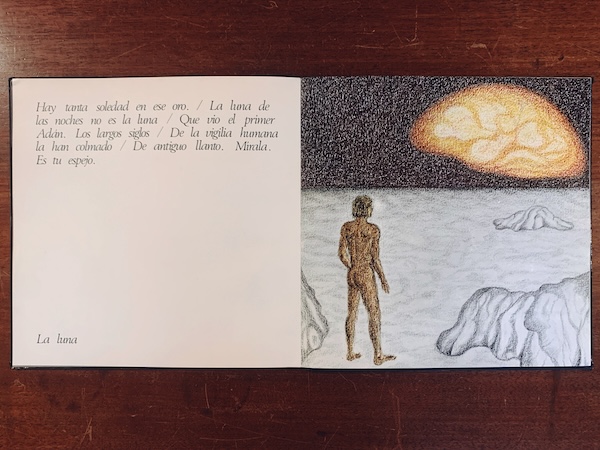 Hay tanta soledad en ese oro. / La luna de
las noches no es la luna / Que vio el primer
Adán. Los largos siglos / De la vigilia humana
la han colmado / De antiguo llanto. Mírala.
Es tu espejo.
La luna